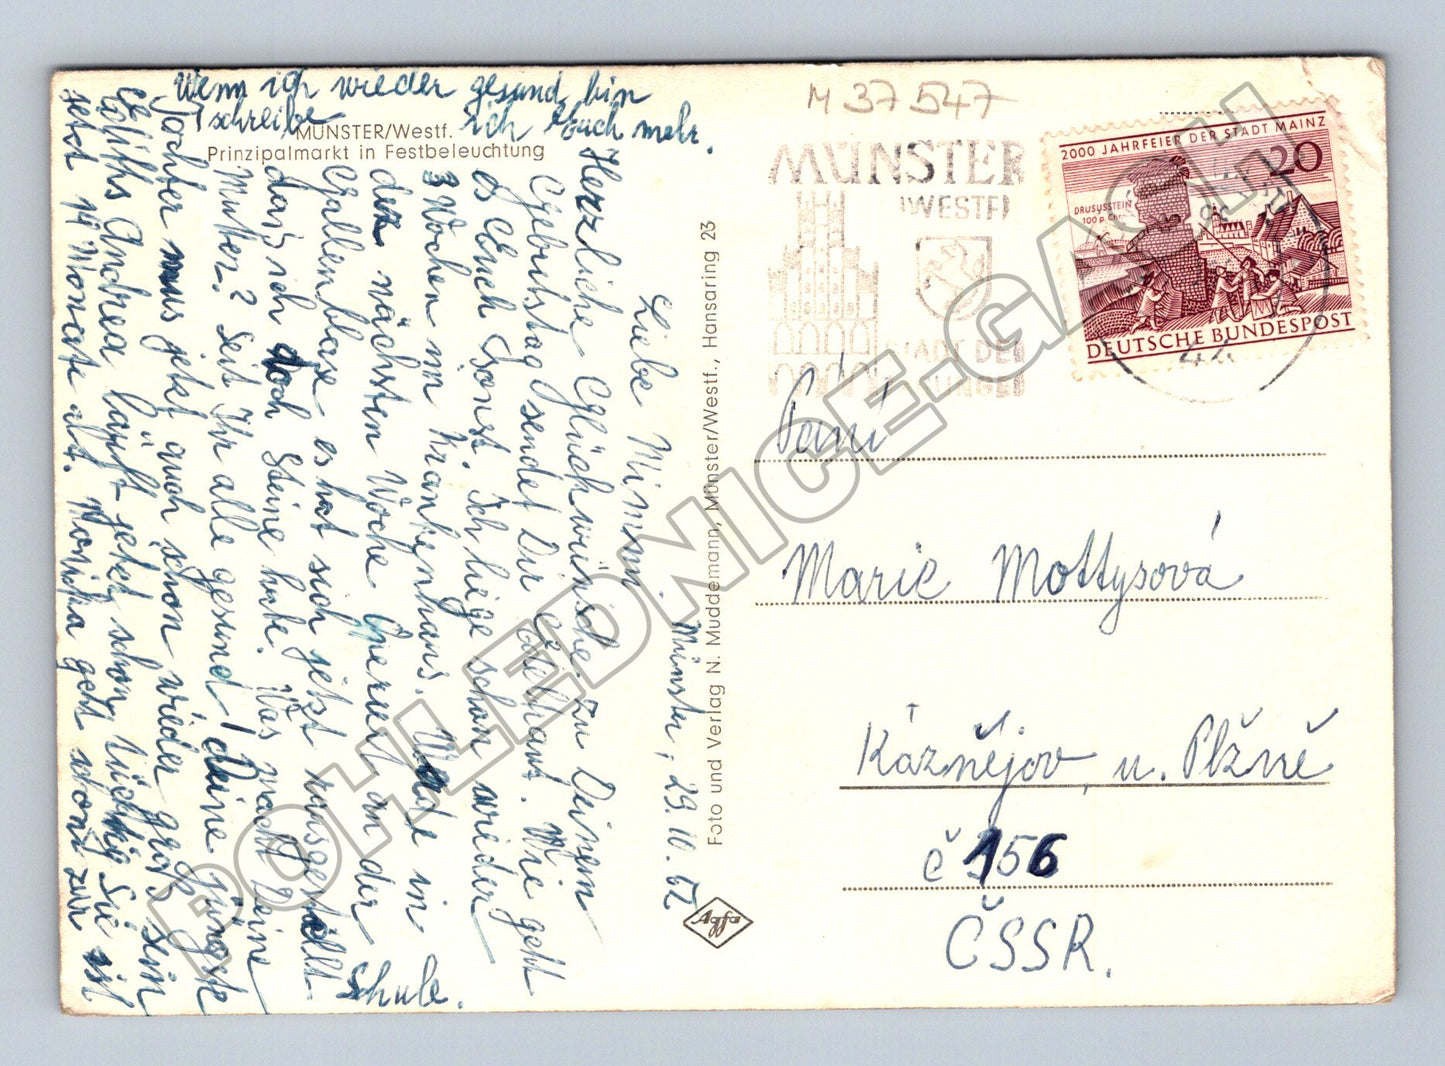 Wenn ich wieder gesund bin
schreibe ich Euch mehr.
MÜNSTER/Westf.
Prinzipalmarkt in Festbeleuchtung
Münster, 29.10.62
Liebe Mimmi.
Herzliche Glückwünsche zu Deinem
Geburtstag sendet Dir Edith aus. Wie geht
es Euch sonst. Ich liege schon wieder
3 Wochen im Krankenhaus. Werde in
der nächsten Woche Operiert an der
Gallenblase es hat sich jetzt rausgestellt.
dass ich doch Steine habe. Was macht Deine
Mutter? Seit Ihr alle gesund? Deine jüngste
Tochter muss jetzt auch schon wieder groß sein
Ediths Andrea läuft jetzt schon tüchtig Sie ist
jetzt 14 Monate alt. Monika geht schon zur
Schule.
Foto und Verlag N. Muddemann, Münster/Westf., Hansaring 23
Agfa
M 37547
MÜNSTER
(WESTF)
STADT DER
2000 JAHRFEIER DER STADT MAINZ
20
DRUSUSSTEIN
100 p. Chr.
DEUTSCHE BUNDESPOST
Paní
Marie Mottysová
Kázňejov, u. Plžně
č 156
ČSSR.
POHLEDNICE-GACH